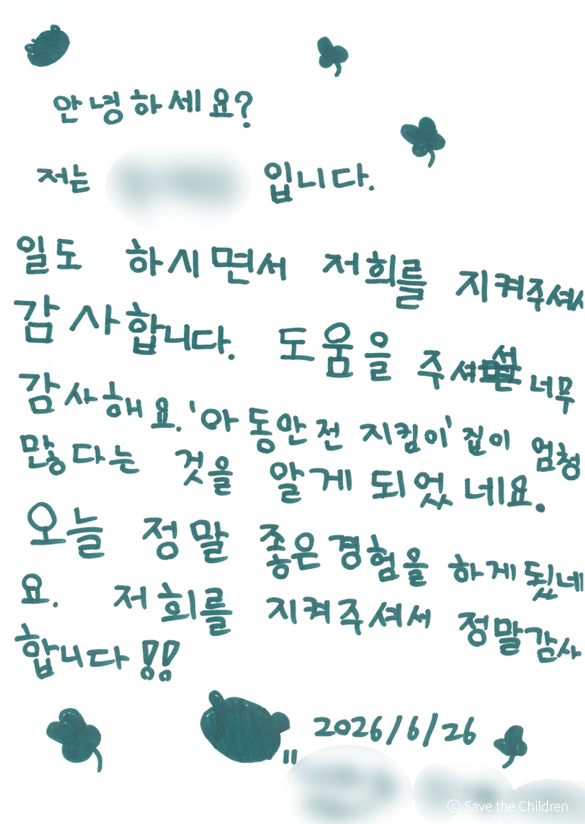 안녕하세요?
저는 입니다.
일도 하시면서 저희를 지켜주셔서
감사합니다. 도움을 주셔서 너무
감사해요. '아동안전 지킴이' 집이 엄청
많다는 것을 알게 되었네요.
오늘 정말 좋은 경험을 하게 됬네
요. 저희를 지켜주셔서 정말 감사
합니다!!
2026/6/26
ⓒ Save the Children